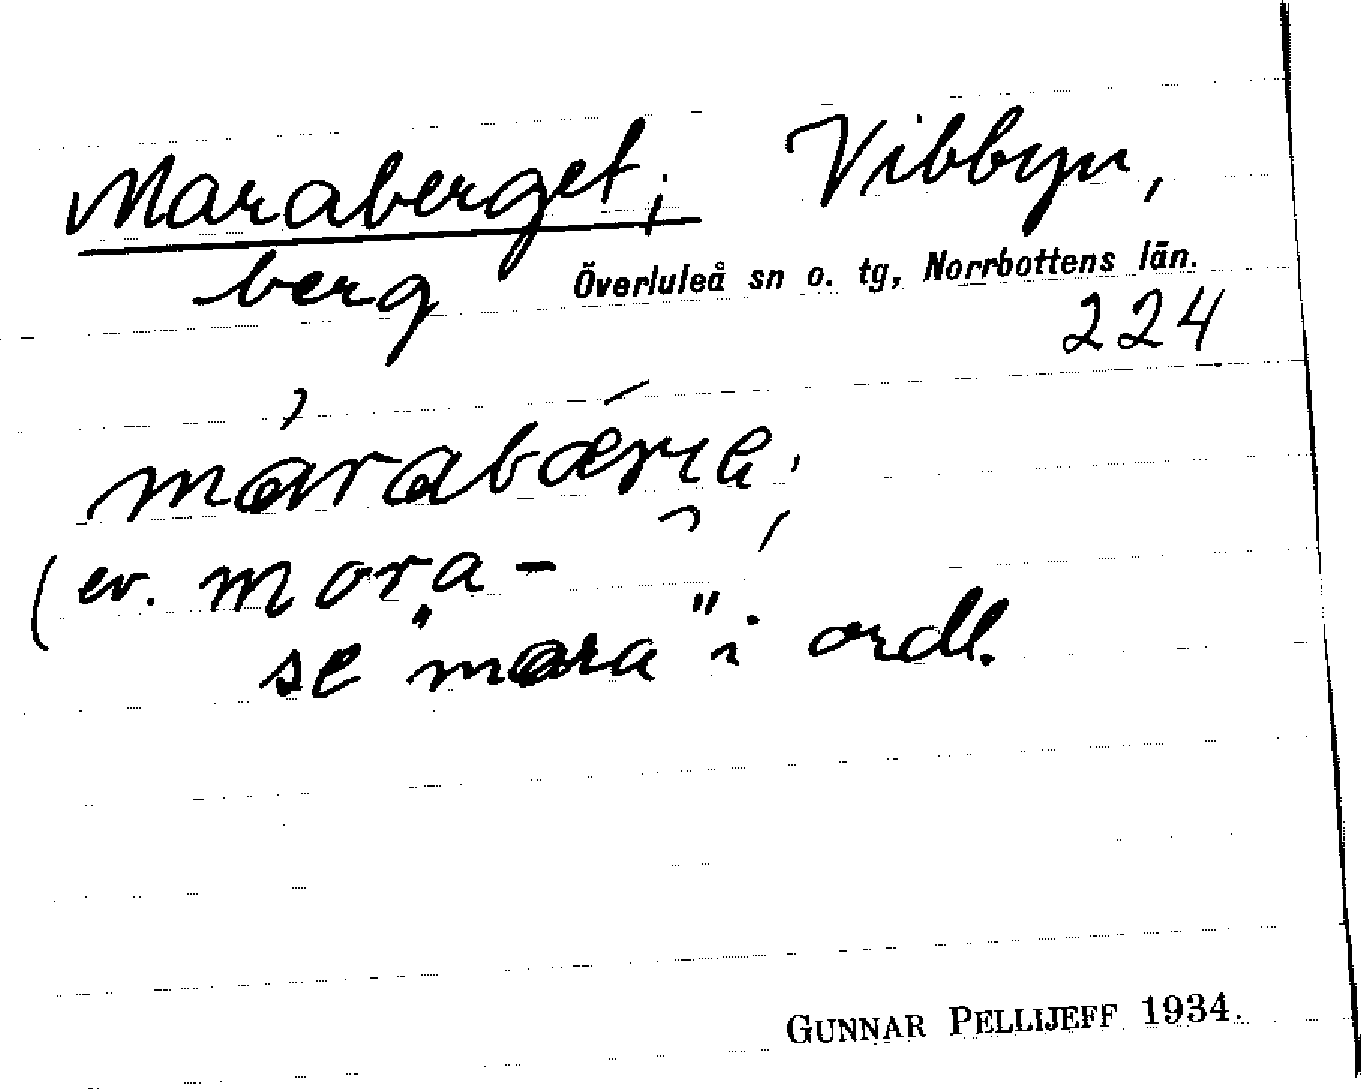 Maraberget, Vibbyn,
berg Överluleå sn o. tg, Norrbottens län.
224
marabærɩe,
(ev. mora-
se "mara" i ordl.
GUNNAR PELLIJEFF 1934.